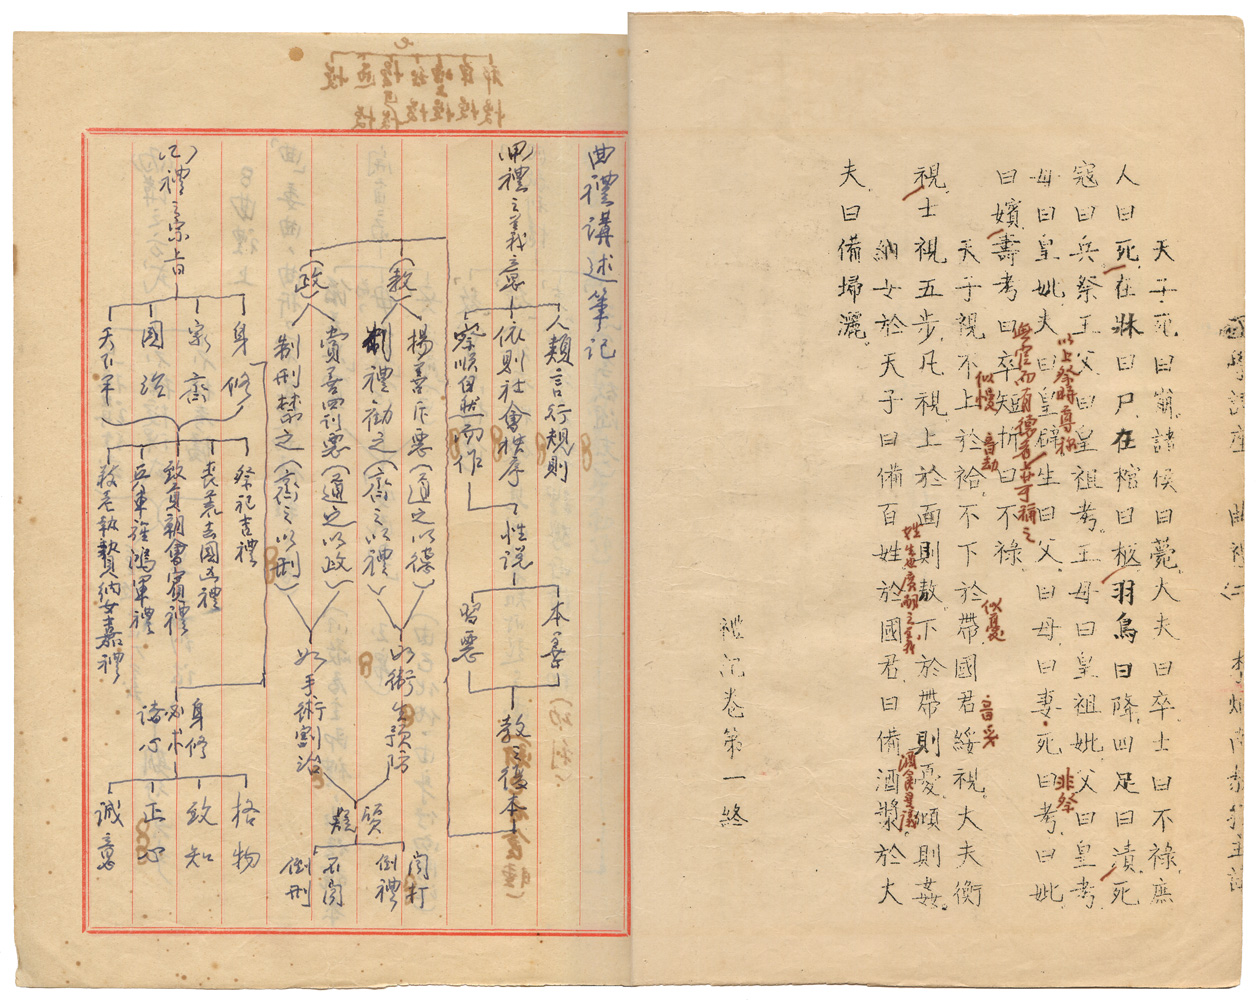 天子死曰崩諸侯曰薨大夫曰卒士曰不祿庶
人曰死在牀曰尸在棺曰柩羽鳥曰降四足曰漬死
寇曰兵祭王父曰皇祖考王母曰皇祖妣父曰皇考
母曰皇妣夫曰皇辟生曰父曰母曰妻死曰考曰妣
曰嬪壽考曰卒短折曰不祿
天子視不上於袷不下於帶國君綏視大夫衡
視士視五步凡視上於面則敖下於帶則憂傾則姦
納女於天子曰備百姓於國君曰備酒漿於大
夫曰備埽灑
禮記卷第一終
以上祭時尊稱
非祭
無官而有德者亦可稱之
似慢
音劫
似憂
音妥
曲禮講述筆記
(甲)禮之義意
人類言行規則
依則社會秩序
察順自然而作
性說
本善
習惡
教之復本
(教)
揚善斥惡(道之以德)
制禮勸之(齊之以禮)
(政)
賞善罰惡(道之以政)
制刑禁之(齊之以刑)
如術生預防
如手術割治
質疑
閱打
倒禮
不閱
倒刑
(乙)禮之宗旨
身修
家齊
國治
天下平
祭祀吉禮
喪荒去國凶禮
致貢朝會賓禮
兵車旌鴻軍禮
教老執贄納女嘉禮
身修
必求
諸心
格物
致知
正心
誠意